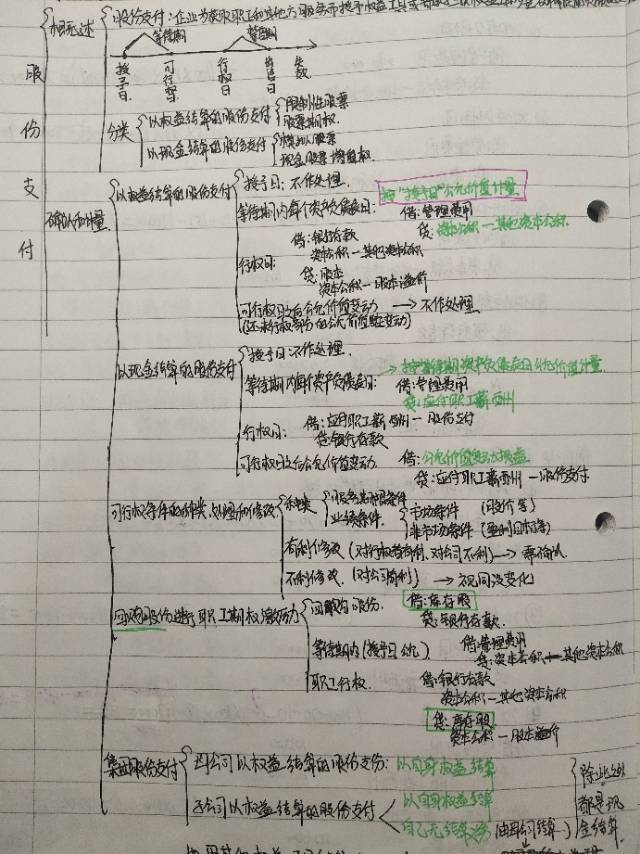 股份支付
概述
股份支付：企业为获取职工和其他方服务而授予权益工具或
等待期
禁售期
授予日 可行权日 行权日 出售日 失效
分类
以权益结算的股份支付
限制性股票
股票期权
以现金结算的股份支付
模拟股票
现金股票增值权
确认和计量
以权益结算的股份支付
授予日：不作处理
按“授予日”公允价值计量
等待期内每个资产负债表日： 借：管理费用
贷：资本公积—其他资本公积
行权日：
借：银行存款
资本公积—其他资本公积
贷：股本
资本公积—股本溢价
可行权日之后公允价值变动 → 不作处理
以现金结算的股份支付
授予日：不作处理
等待期内每个资产负债表日：
→ 按等待期资产负债表日公允价值计量
借：管理费用
贷：应付职工薪酬
行权日： 借：应付职工薪酬—股份支付
贷：银行存款
可行权日之后公允价值变动
借：公允价值变动损益
贷：应付职工薪酬—股份支付
可行权条件的种类、处理和修改
种类
服务期限条件
业绩条件
市场条件 (股价等)
非市场条件 (盈利目标等)
有利修改 (对行权者有利，对公司不利) → 要确认
不利修改 (对公司有利) → 视同没变化
回购股份进行职工期权激励
回购股份
借：库存股
贷：银行存款
等待期内 (授予日公允)
借：管理费用
贷：资本公积—其他资本公积
职工行权
借：银行存款
资本公积—其他资本公积
贷：库存股
资本公积—股本溢价
集团股份支付
母公司以权益结算的股份支付： 以自身权益结算
子公司以权益结算的股份支付
以自身权益结算
自己无结算义务 (由母公司结算)
除此之外都是现金结算